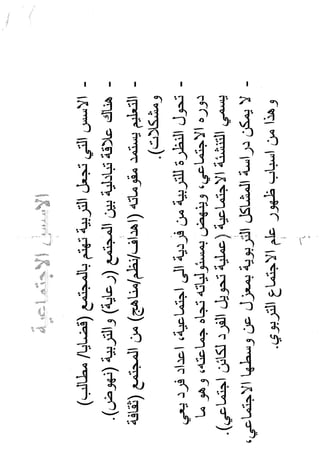 الاسس الاجتماعية
- الاسس التي تجعل التربية تهتم بالمجتمع (قضايا/ مطالب)
- هناك علاقة تبادلية بين المجتمع (رعاية) والتربية (نهوض).
- التعليم يستمد مقوماته (اهداف/نظم/مناهج) من المجتمع (ثقافة
ومشكلات).
- تحول النظرة للتربية من فردية الى اجتماعية، اعداد فرد يعي
دوره الاجتماعي، وينهض بمسئولياته تجاه جماعته، وهو ما
يسمي التنشئة الاجتماعية (عملية تحويل الفرد لكائن اجتماعي).
- لا يمكن دراسة المشاكل التربوية بمعزل عن وسطها الاجتماعي،
وهذا من اسباب ظهور علم الاجتماع التربوي.